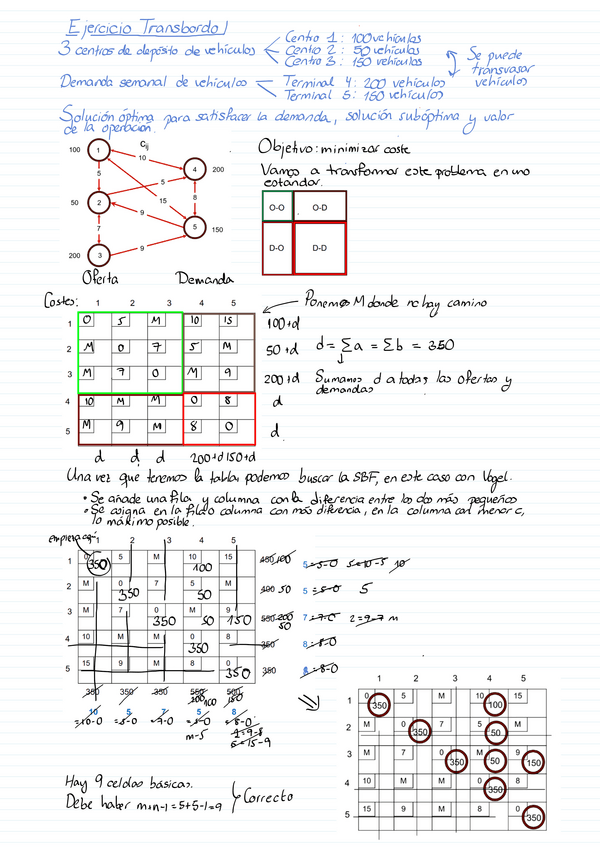 Ejercicio Transbordo 1
3 centros de depósito de vehículos
Centro 1: 100 vehículos
Centro 2: 50 vehículos
Centro 3: 150 vehículos
Se puede
transvasar
vehículos
Demanda semanal de vehículos
Terminal 4: 200 vehículos
Terminal 5: 150 vehículos
Solución óptima para satisfacer la demanda, solución subóptima y valor
de la operación.
Cij
100 1 10 4 200
5 5
50 2 15 8
9 5 150
7
200 3 9
Oferta Demanda
Objetivo: minimizar coste
Vamos a transformar este problema en uno
estandar.
O-O O-D
D-O D-D
Costes: 1 2 3 4 5
1 0 5 M 10 15 100+d
2 M 0 7 5 M 50+d
3 M 7 0 M 9 200+d
4 10 M M 0 8 d
5 M 9 M 8 0 d
d d d 200+d 150+d
Ponemos M donde no hay camino
d = Σa = Σb = 350
Sumamos d a todas las ofertas y
demandas
Una vez que tenemos la tabla, podemos buscar la SBF, en este caso con Vogel.
• Se añade una fila y columna con la diferencia entre los dos más pequeños
• Se asigna en la fila o columna con más diferencia, en la columna con menor c,
lo máximo posible.
empieza aquí
1 2 3 4 5
1 0 350 5 M 10 100 15 450 100 5=5-0 5=10-5 10
2 M 0 350 7 5 50 M 400 50 5=5-0 5
3 M 7 0 350 M 50 9 150 550 200 50 7=7-0 2=9-7 M
4 10 M M 0 350 8 350 8=8-0
5 15 9 M 8 0 350 350 8=8-0
350 350 350 550 200 100 500 150
10 5 7 5 8
=10-0 =5-0 =7-0 =5-0 =8-0
M-5 1=9-8
6=15-9
1 2 3 4 5
1 0 350 5 M 10 100 15
2 M 0 350 7 5 50 M
3 M 7 0 350 M 50 9 150
4 10 M M 0 350 8
5 15 9 M 8 0 350
Hay 9 celdas básicas.
Debe haber m+n-1=5+5-1=9
Correcto